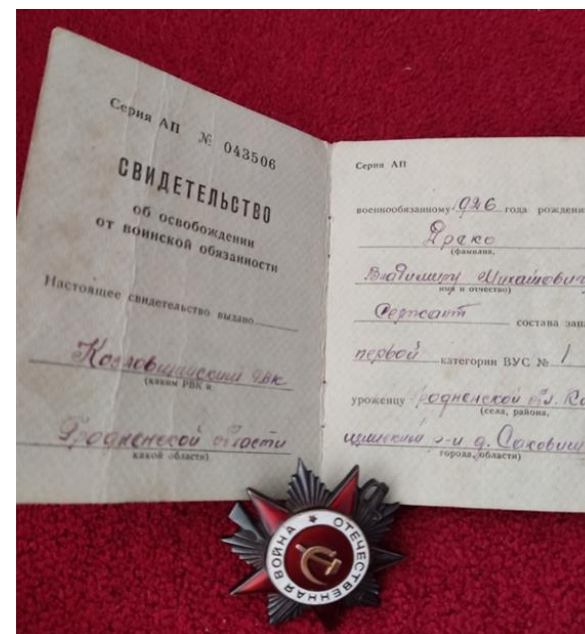 Серия АП № 043506
СВИДЕТЕЛЬСТВО
об освобождении
от воинской обязанности
Настоящее свидетельство выдано
Козловщинский РВК
(каким РВК и
Гродненской области
какой области)
Серия АП
военнообязанному 1926 года рождени
Драко
(фамилия,
Владимиру Михайлович
имя и отчество)
Сержант состава зап
первой категории ВУС № 1
уроженцу Гродненской обл. Ко
(села, района,
р-н д.
города, области)
ОТЕЧЕСТВЕННАЯ ВОЙНА